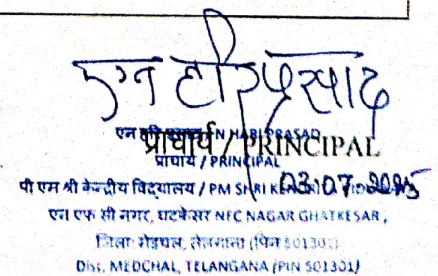 एन हरिप्रसाद
एन हरि प्रसाद / N HARI PRASAD
प्राचार्य / PRINCIPAL
प्राचार्य / PRINCIPAL
पी एम श्री केन्द्रीय विद्यालय / PM SHRI
03.07.2025
एन एफ सी नगर, घटकेसर NFC NAGAR GHATKESAR,
जिला मेडचल, तेलंगाना (पिन 501301)
Dist. MEDCHAL, TELANGANA (PIN 501301)